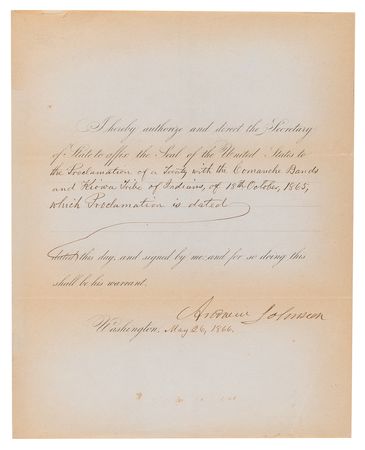 I hereby authorize and direct the Secretary
of State to affix the Seal of the United States to
the Proclamation of a Treaty with the Comanche Bands
and Kiowa Tribe of Indians, of 18th October, 1865,
which Proclamation is dated
dated this day, and signed by me: and for so doing this
shall be his warrant.
Andrew Johnson
Washington, May 26, 1866.